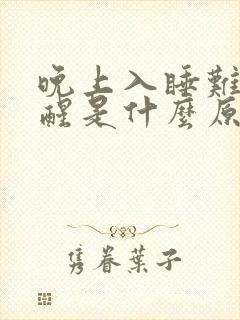 晚上入睡難
醒是什麼原
隽眷葉子